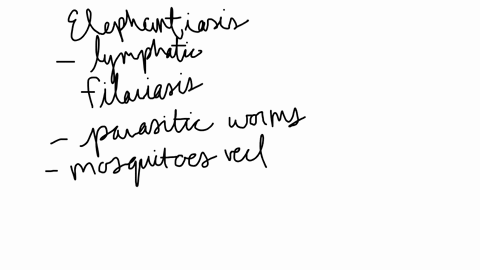 Elephantiasis
- lymphatic
filariasis
- parasitic worms
- mosquitoes vect